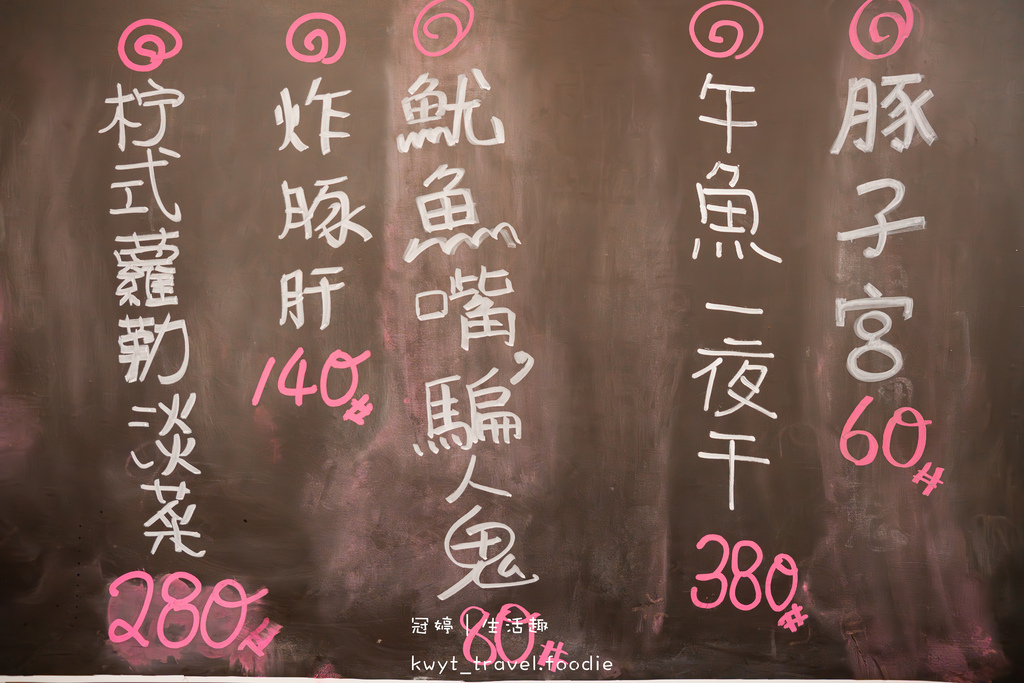 豚子宮
60#
午魚一夜干
380#
魷魚嘴,騙人鬼
80#
炸豚肝
140#
柠式蘿勒淡菜
280#
冠婷 | 生活趣
kwyt_travel.foodie